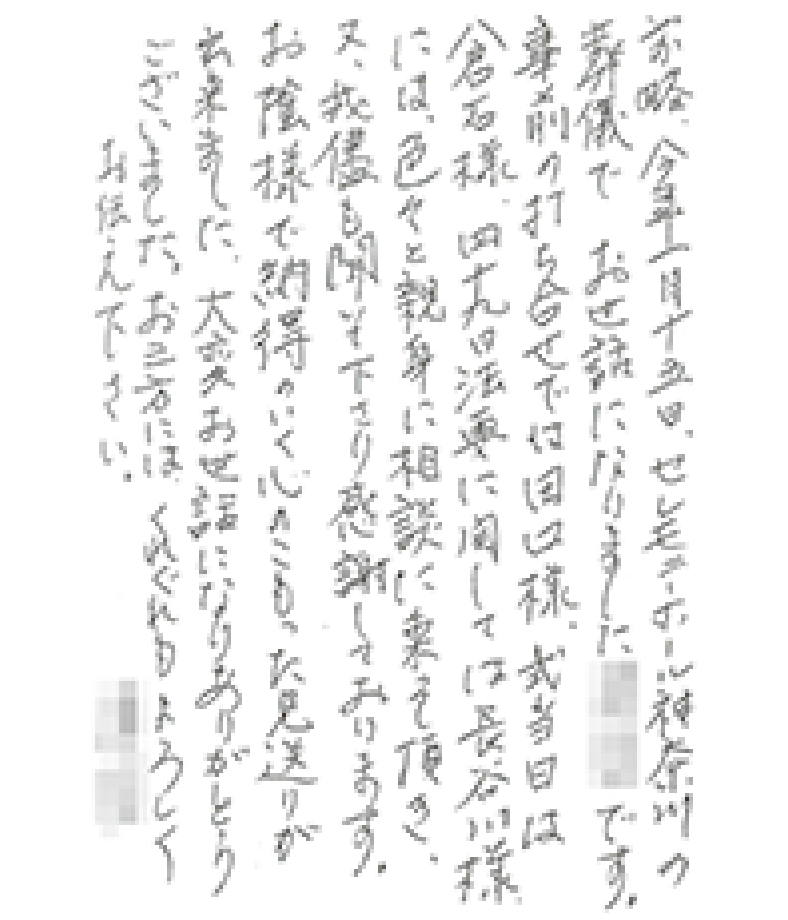 前略、今年一月十五日、セレモニーホール神奈川の
葬儀で お世話になりました です。
事前の打ち合せでは田口様、式当日は
八倉石様、四十九日法要に関しては長谷川様
には、色々と親身に相談に乗って頂き、
又、我儘も聞いて下さり感謝しております。
お陰様で納得のいく心のこもった見送りが
出来ました。大変お世話になりありがとう
ございました。お三方には、くれぐれもよろしく
お伝え下さい。